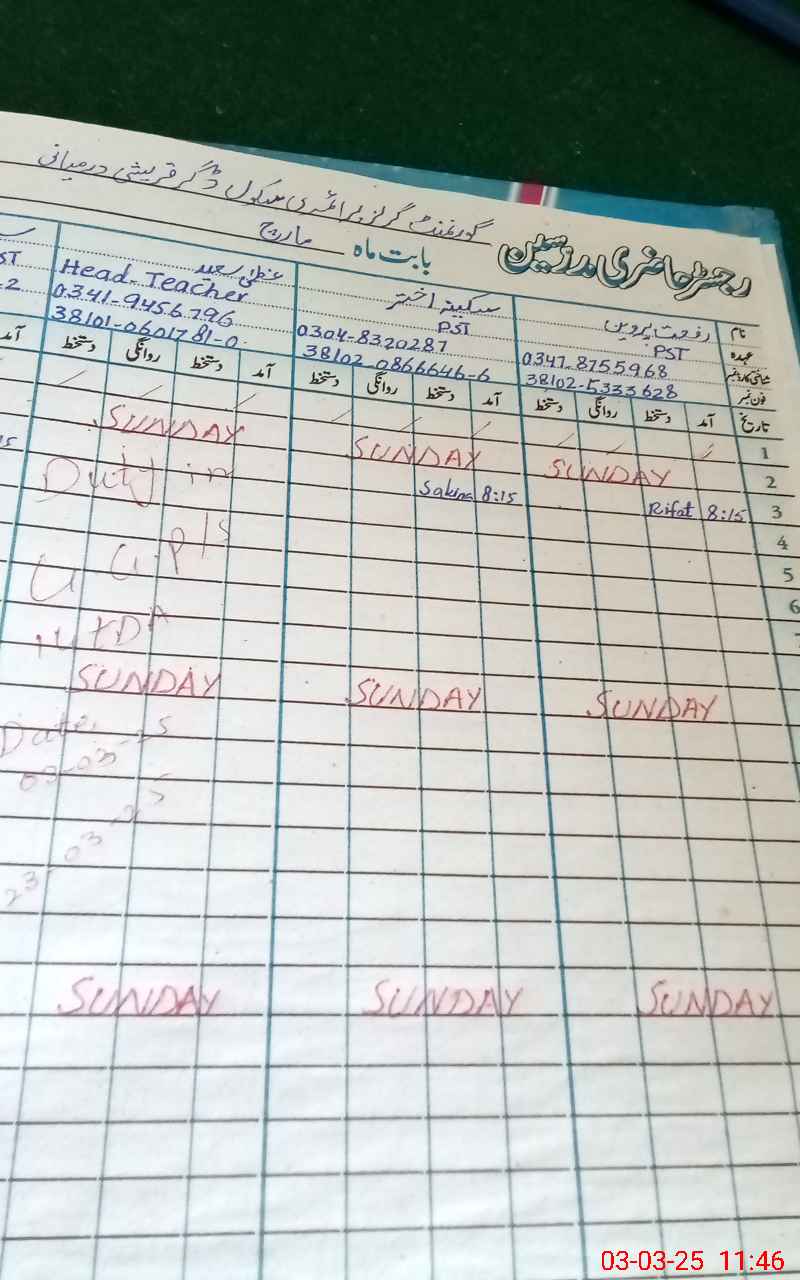 گورنمنٹ گرلز پرائمری سکول ڈگر قریشی درمیانی
رجسٹر حاضری مدرسین
بابت ماہ مارچ
نام رفعت پروین سکینہ اختر عظمیٰ سعید
عہدہ PST PST Head-Teacher ST
شناختی کارڈ نمبر 0347-8755968 0304-8320287 0341-9456796
فون نمبر 38102-5333628 38102-0866646-6 38101-0601781-0
تاریخ آمد دستخط روانگی دستخط آمد دستخط روانگی دستخط آمد دستخط روانگی دستخط آمد
1
2 SUNDAY SUNDAY SUNDAY
3 8:15 Rifat 8:15 Sakina Duty in
4
5
6
SUNDAY SUNDAY SUNDAY
Date.
03-03-25
23-03-25
SUNDAY SUNDAY SUNDAY
03-03-25 11:46